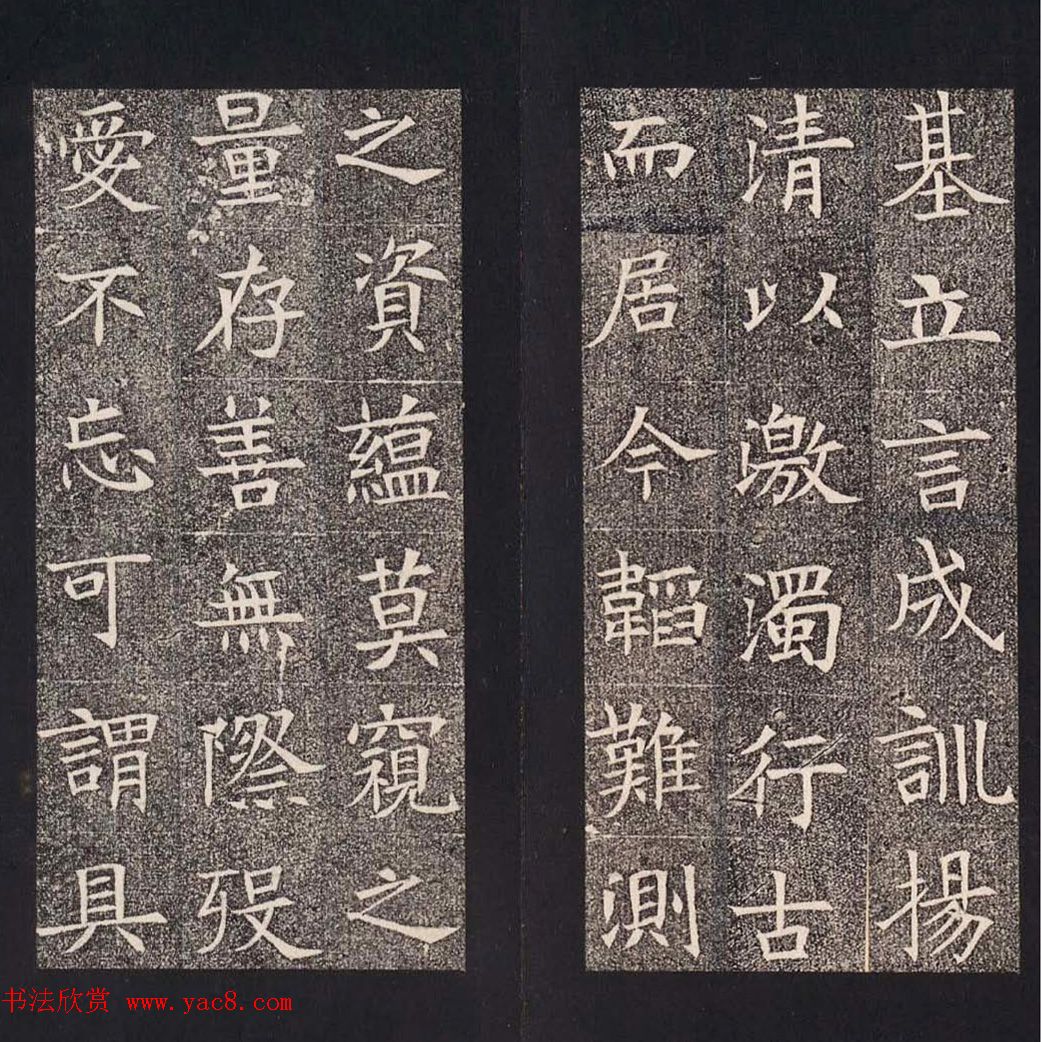 基立言成訓揚
清以激濁行古
而居今韜難測
之資蘊莫窺之
量存善無際歿
愛不忘可謂具
书法欣赏 www.yac8.com